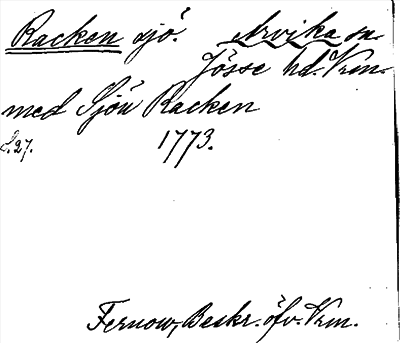 Racken sjö. Arvika sn.
Jösse hd. Vrm.
med Sjön Racken
S.27. 1773.
Fernow, Beskr. öfv. Vrm.